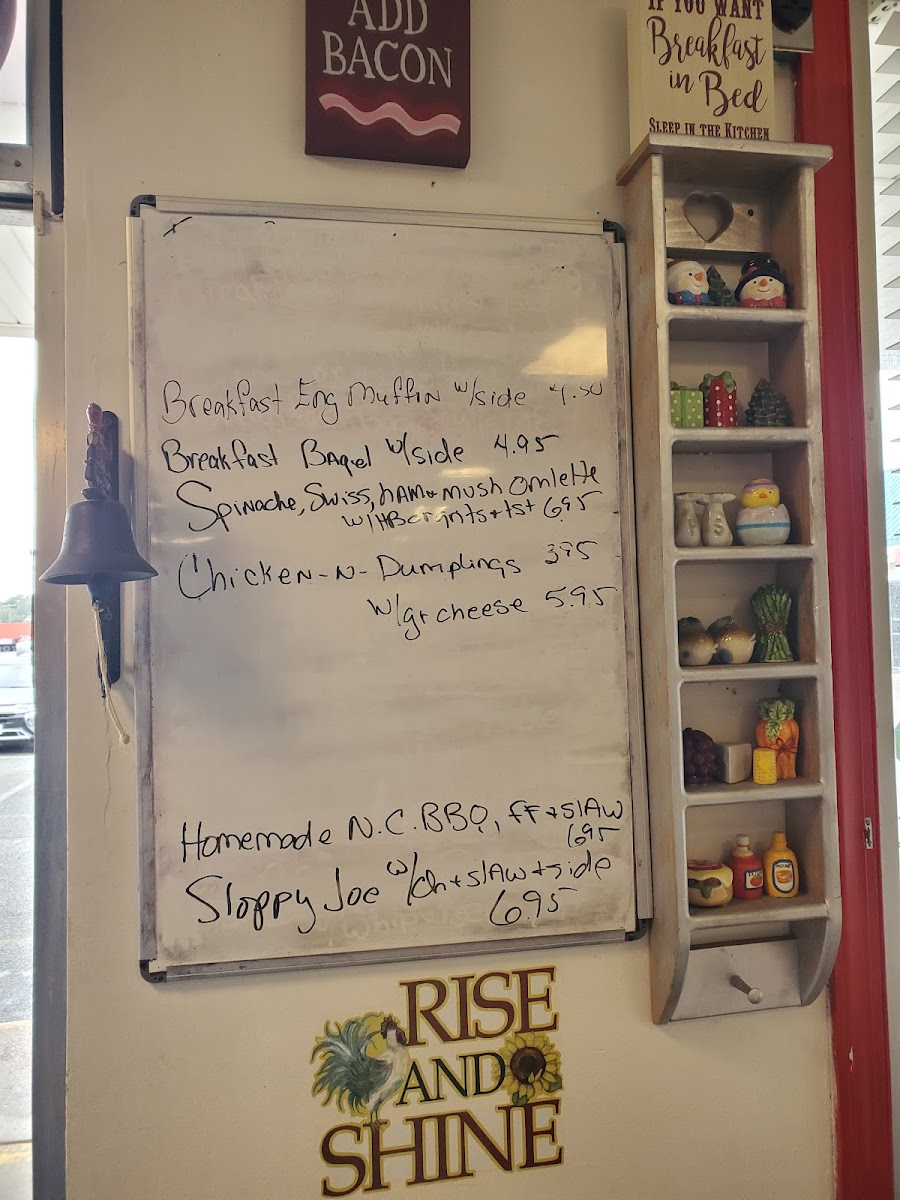 ADD
BACON
IF YOU WANT
Breakfast
in
Bed
SLEEP IN THE KITCHEN
Breakfast Eng Muffin w/side 4.50
Breakfast Bagel w/side 4.95
Spinache, Swiss, ham + mush Omlette
w/HB or grits + tst 6.95
Chicken-N-Dumplings 3.95
w/gr cheese 5.95
Homemade N.C. BBQ, FF + slaw
6.95
Sloppy Joe w/ch + slaw + side
6.95
RISE
AND
SHINE